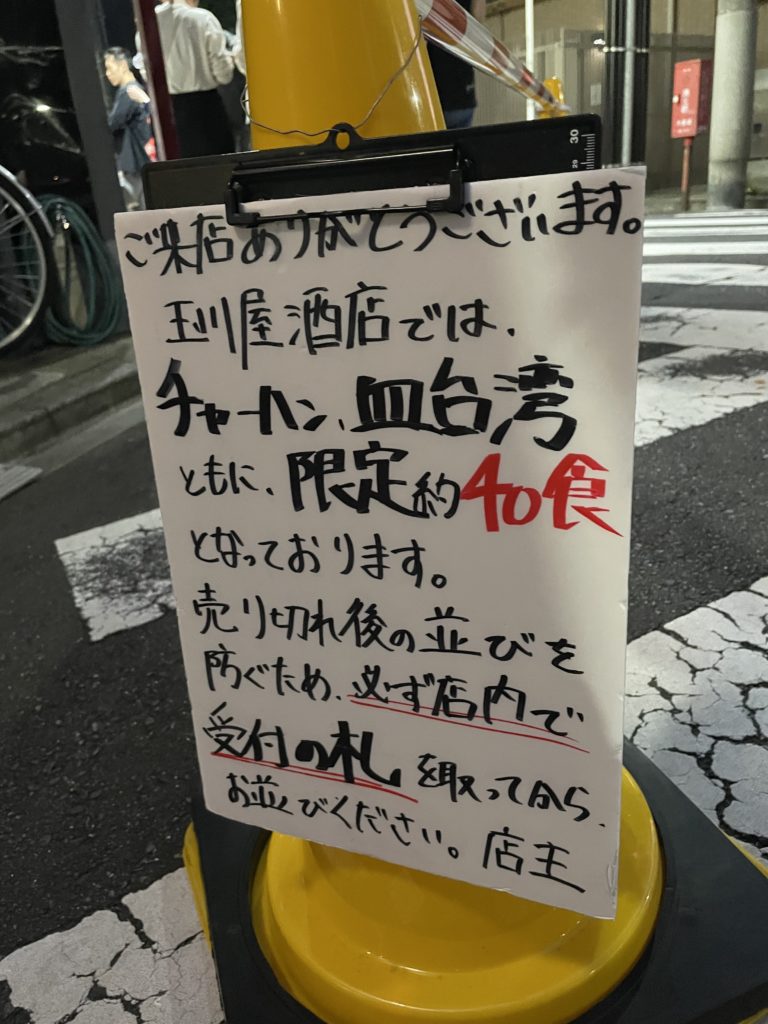 30
29
ご来店ありがとうございます。
玉川屋酒店では、
チャーハン、皿台湾
ともに、限定約40食
となっております。
売り切れ後の並びを
防ぐため、必ず店内で
受付の札を取ってから、
お並びください。店主